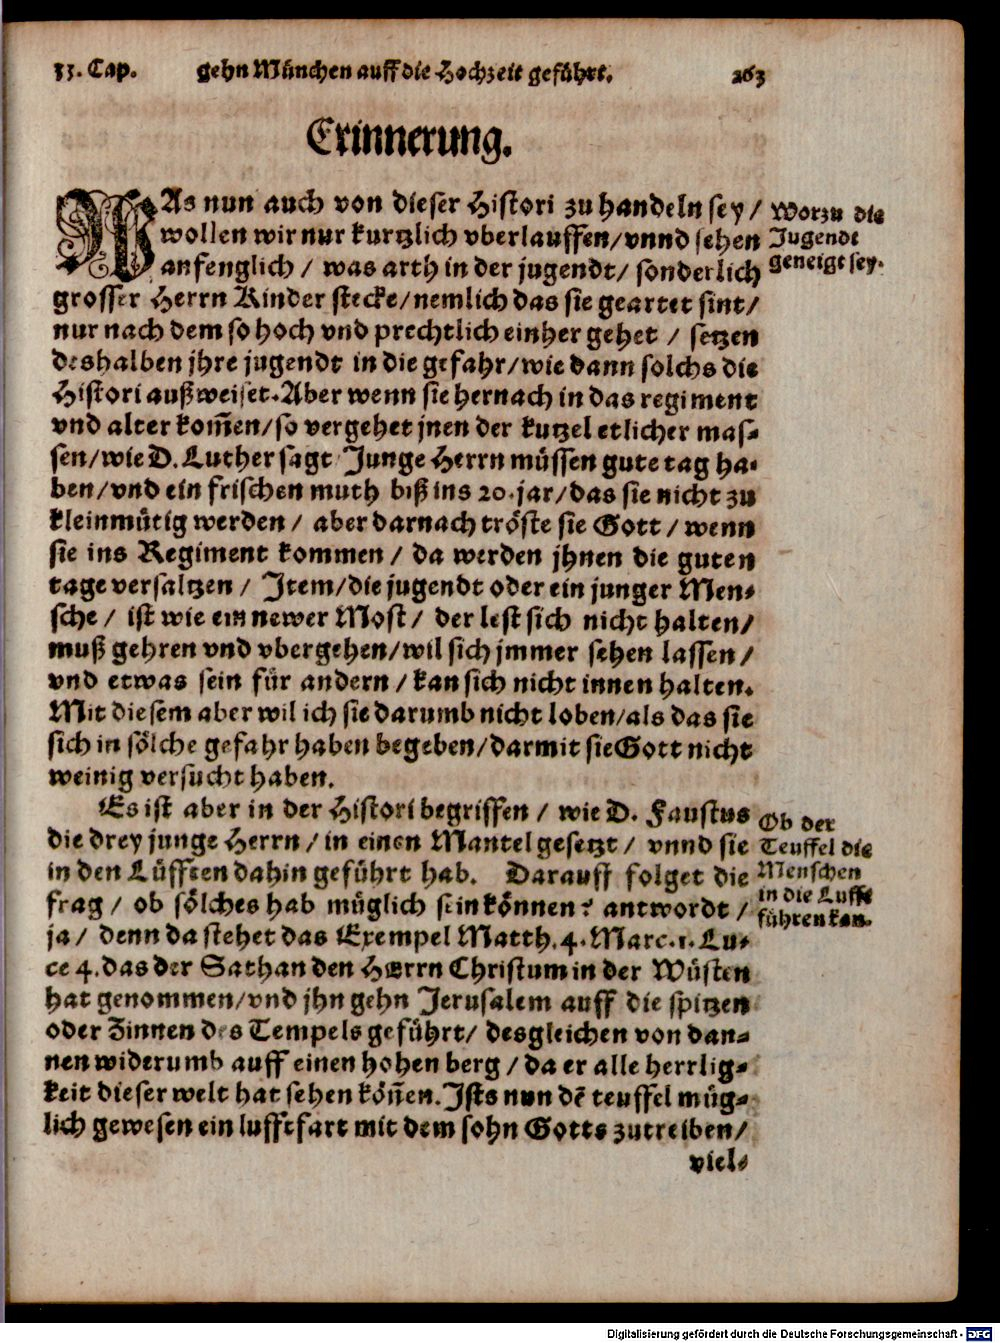 33. Cap. gehn München auff die Hochzeit geführt. 263
Erinnerung.
WAs nun auch von dieser Histori zu handeln sey /
wollen wir nur kurtzlich vberlauffen/vnnd sehen
anfenglich / was arth in der jugendt/ sonderlich
grosser Herrn Kinder stecke/nemlich das sie geartet sint/
nur nach dem so hoch vnd prechtlich einher gehet / setzen
deshalben jhre jugendt in die gefahr/wie dann solchs die
Histori außweiset. Aber wenn sie hernach in das regiment
vnd alter kom̄en/so vergehet jnen der kutzel etlicher mas-
sen/wie D. Luther sagt Junge Herrn müssen gute tag ha-
ben/vnd ein frischen muth biß ins 20. jar/das sie nicht zu
kleinmütig werden / aber darnach tröste sie Gott / wenn
sie ins Regiment kommen / da werden jhnen die guten
tage versaltzen / Item/die jugendt oder ein junger Men-
sche / ist wie ein newer Most / der lest sich nicht halten/
muß gehren vnd vbergehen/wil sich jmmer sehen lassen /
vnd etwas sein für andern / kan sich nicht innen halten.
Mit diesem aber wil ich sie darumb nicht loben/als das sie
sich in sölche gefahr haben begeben/darmit sie Gott nicht
weinig versucht haben.
Worzu die
Jugendt
geneigt sey.
Es ist aber in der Histori begriffen / wie D. Faustus
die drey junge Herrn / in einen Mantel gesetzt / vnnd sie
in den Lüfften dahin geführt hab. Darauff folget die
frag / ob sölches hab müglich sein können? antwordt /
ja / denn da stehet das Exempel Matth. 4. Marc. 1. Lu-
ce 4. das der Sathan den HErrn Christum in der Wüsten
hat genommen/vnd jhn gehn Jerusalem auff die spitzen
oder Zinnen des Tempels geführt/ desgleichen von dan-
nen widerumb auff einen hohen berg / da er alle herrlig-
keit dieser welt hat sehen kön̄en. Ists nun dē teuffel müg-
lich gewesen ein lufftfart mit dem sohn Gotts zutreiben/
Ob der
Teuffel die
Menschen
in die Lufft
führen kan.
viel-
Digitalisierung gefördert durch die Deutsche Forschungsgemeinschaft - DFG